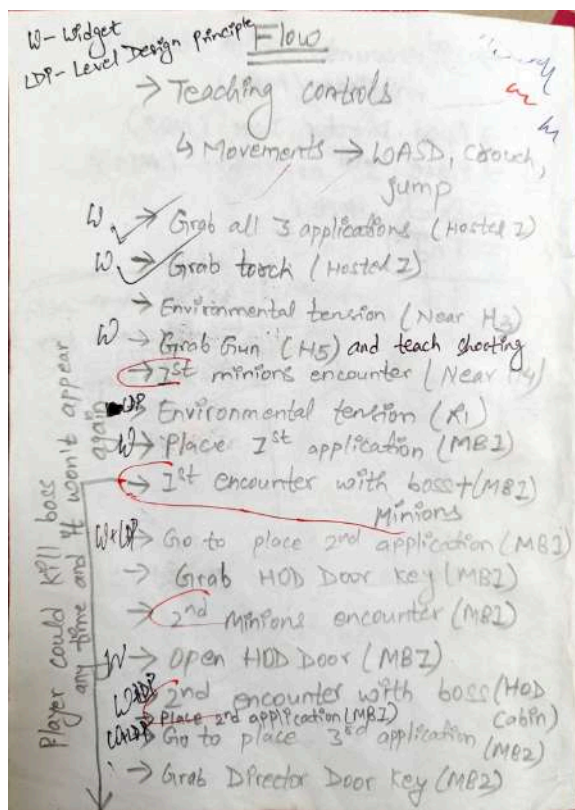 W - Widget
LDP - Level Design Principle
Flow
→ Teaching controls
↳ Movements → WASD, Crouch,
jump
W → Grab all 3 applications (Hostel 1)
W → Grab torch (Hostel 1)
→ Environmental tension (Near H3)
W → Grab Gun (H5) and teach shooting
→ 1st minions encounter (Near H4)
LDP → Environmental tension
W → Place 1st application (MB1)
→ 1st encounter with boss + (MB1)
Minions
W+LDP → Go to place 2nd application (MB1)
→ Grab HOD Door Key (MB1)
→ 2nd Minions encounter (MB1)
W → Open HOD Door (MB1)
W+LDP → 2nd encounter with boss (HOD
Cabin)
→ Place 2nd application (MB1)
W+LDP → Go to place 3rd application (MB2)
→ Grab Director Door Key (MB2)
Player could kill boss
any time and it won't appear
again